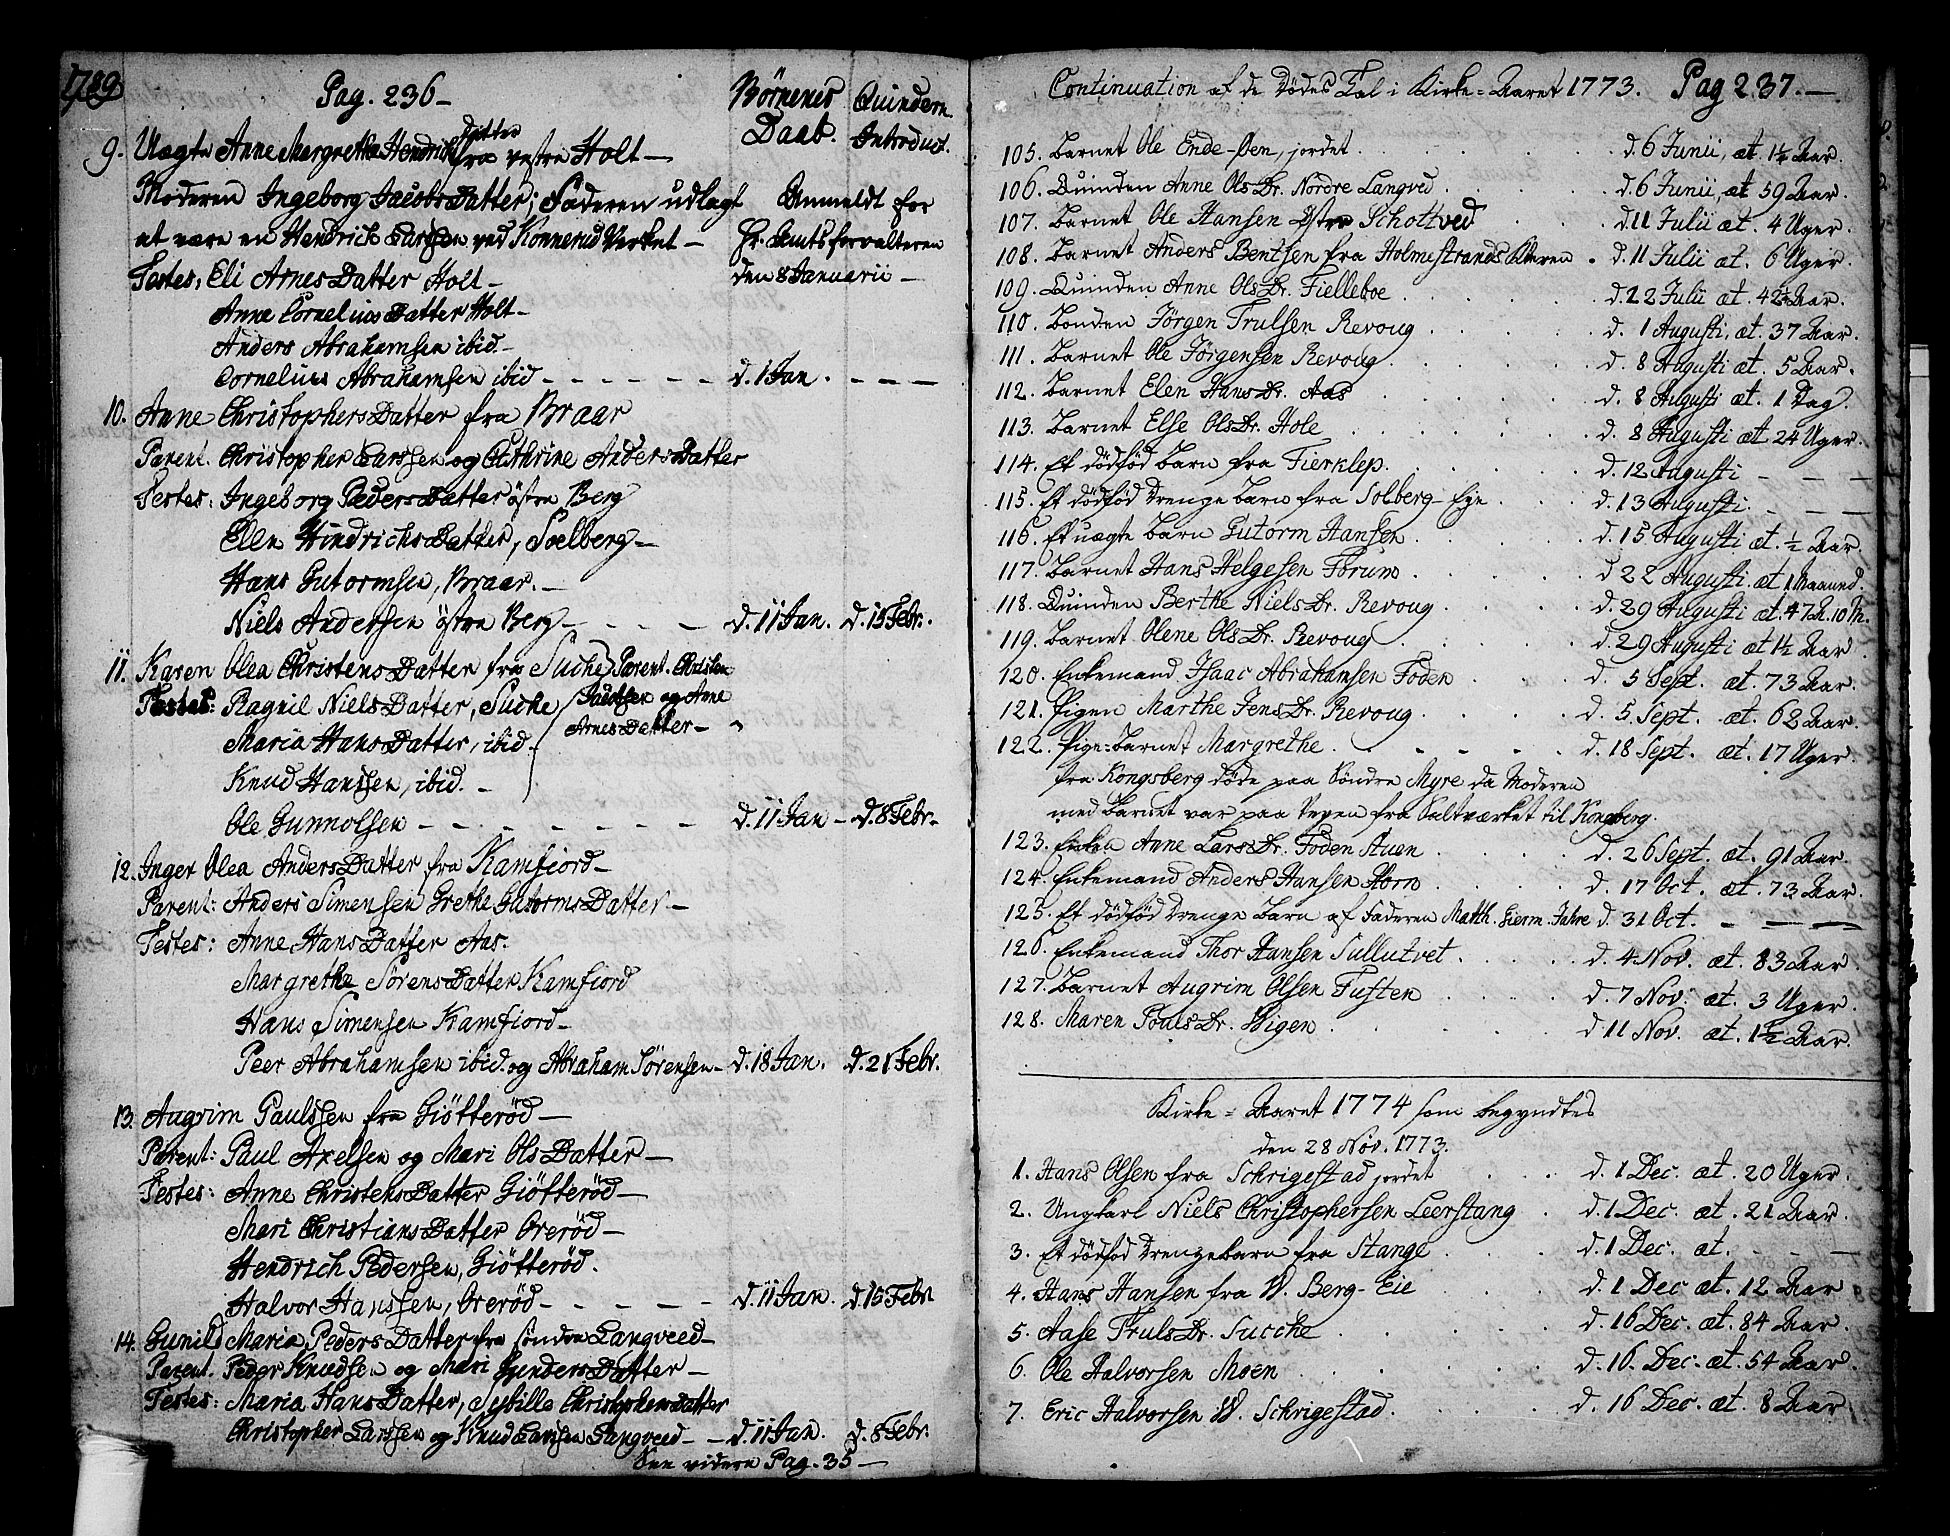 1789
Pag. 236 –
Börnenes Daab.
Quindern. Introduct.
9. Uægte Anne Margrethe Hendrichs Datter fra vestre Holt –
Moderen Ingeborg Jacobs Datter; Faderen udlagt Anmeldt for
at være en Hendrich Larssen ved Konnerud Verket – Hr. Amtsforvalteren
Testes, Eli Arnes Datter Holt – den 8 Januarii –
Anne Cornelius Datter Holt –
Anders Abrahamsen ibid. –
Cornelius Abrahamsen ibid – – – – – – d. 1 Jan. – – –
10. Anne Christophers Datter fra Braar
Parent. Christopher Larssen og Cathrine Anders Datter
Testes: Ingeborg Peders Datter östre Berg
Elen Hindrichs Datter, Soelberg –
Hans Gutormsen, Braar. –
Niels Andersen östre Berg – – – – – d. 11 Jan. d. 15 Febr.
11. Karen Olea Christens Datter fra Suche, Parent. Christen
Testes: Ragnil Niels Datter, Suche Jacobsen og Anne
Maria Hans Datter, ibid – Arnes Datter – "
Knud Hanssen, ibid. –
Ole Gunnolsen – – – – – – – – d. 11 Jan – d. 8 Febr. –
12. Inger Olea Anders Datter fra Kamfiord –
Parent: Anders Simensen Grethe Gutorms Datter –
Testes: Anne Hans Datter Aas.
Margrethe Sörens Datter Kamfiord
Hans Simensen Kamfiord –
Peer Abrahamsen ibid. og Abraham Sörensen – d. 18 Jan. d. 21 Febr.
13. Augrim Paulssen fra Giötteröd –
Parent: Paul Axelsen og Mari Ols Datter –
Testes: Anne Christens Datter Giötteröd –
Mari Christians Datter Oreröd –
Hendrich Pedersen, Giötteröd.
Halvor Hanssen, Oreröd – – – – – d. 11 Jan. d. 15 Febr
14. Gunild Maria Peders Datter fra söndre Langveed –
Parent. Peder Knudsen og Mari Gunders Datter –
Testes: Maria Hans Datter, Sybille Christophersdatter
Christopher Larssen og Knud Larssen Langveed – – d. 11 Jan. d. 8 Febr.
See videre Pag. 35 –
Continuation af de Dödes Tal i Kirke=Aaret 1773. Pag 237. –
105. Barnet Ole Ende-Öen, jordet . . . . d. 6 Junii, æt. 1½ Aar.
106. Quinden Anne Ols Dr. Nordre Langved . . . d. 6 Junii, æt 59 Aar.
107. Barnet Ole Hansen Östre Schottved . . d. 11 Julii æt. 4 Uger.
108. Barnet Anders Bentsen fra Holmestrands Kleven . d. 11 Julii æt. 6 Uger.
109. Quinden Anne Ols Dr. Fielleboe . . . . d. 22 Julii æt. 42 Aar.
110. Bonden Jörgen Trulsen Revoug . . . . d. 1 Augusti, æt. 37 Aar.
111. Barnet Ole Jörgensen Revoug . . . . d. 8 Augusti æt. 5 Aar.
112. Barnet Elen Hans Dr. Aas . . . . d. 8 Augusti æt. 1 Dag.
113. Barnet Else Ols Dr. Hole . . . . d. 8 Augusti æt. 24 Uger.
114. Et dödföd Barn fra Fierklep. . . . . d. 12 Augusti – – –
115. Et dödföd Drenge Barn fra Solberg-Eye . . d. 13 Augusti. – – –
116. Et uægte Barn Gutorm Hansen . . . . d. 15 Augusti æt. ½ Aar.
117. Barnet Hans Helgesen Forum . . . . d 22 Augusti. æt 1 Maaned.
118. Quinden Berthe Niels Dr. Revoug . . . . d. 29 Augusti æt. 47 A. 10 M.
119. Barnet Olene Ols Dr. Revoug . . . . d. 29 Augusti æt 1½ Aar.
120. Enkemand Isaac Abrahamsen Foden . . . d. 5 Sept. æt. 73 Aar.
121. Pigen Marthe Jens Dr. Revoug . . . . d. 5 Sept. æt. 62 Aar.
122. Pige=Barnet Margrethe . . . . . d. 18 Sept. æt. 17 Uger.
fra Kongsberg döde paa Söndre Myre da Moderen
med Barnet var paa Veyen fra Saltværket til Kongsberg.
123. Enken Anne Lars Dr. Foden Stuen . . . . d. 26 Sept. æt. 91 Aar.
124. Enkemand Anders Hansen Horn . . . . d. 17 Oct. æt. 73 Aar.
125. Et dödföd Drenge Barn af Faderen Matth. Gierm. Jahre d. 31 Oct. – – –
126. Enkemand Thor Hansen Sullutvet . . . . d. 4 Nov. æt. 83 Aar.
127. Barnet Augrim Olsen Tuften . . . . d. 7 Nov. æt. 3 Uger.
128. Maren Pouls Dr. Higen . . . . d 11 Nov. æt. 1½ Aar.
Kirke=Aaret 1774 som begyndtes
den 28 Nov. 1773.
1. Hans Olsen fra Schrigestad jordet . . d. 1 Dec. æt. 20 Uger.
2. Ungkarl Niels Christophersen Leerstang . d. 1 Dec. æt. 21 Aar.
3. Et dödföd Drengebarn fra Stange . . . d. 1 Dec. æt. – – –
4. Hans Hansen fra W. Berg-Eie . . . d. 1 Dec. æt. 12 Aar
5. Aase Truls Dr. Sucche . . . . d. 16 Dec. æt. 84 Aar.
6. Ole Halvorsen Moen . . . . d. 16. Dec. æt. 54 Aar.
7. Eric Halvorsen W. Schrigestad . . . . d. 16 Dec. æt. 8 Aar.